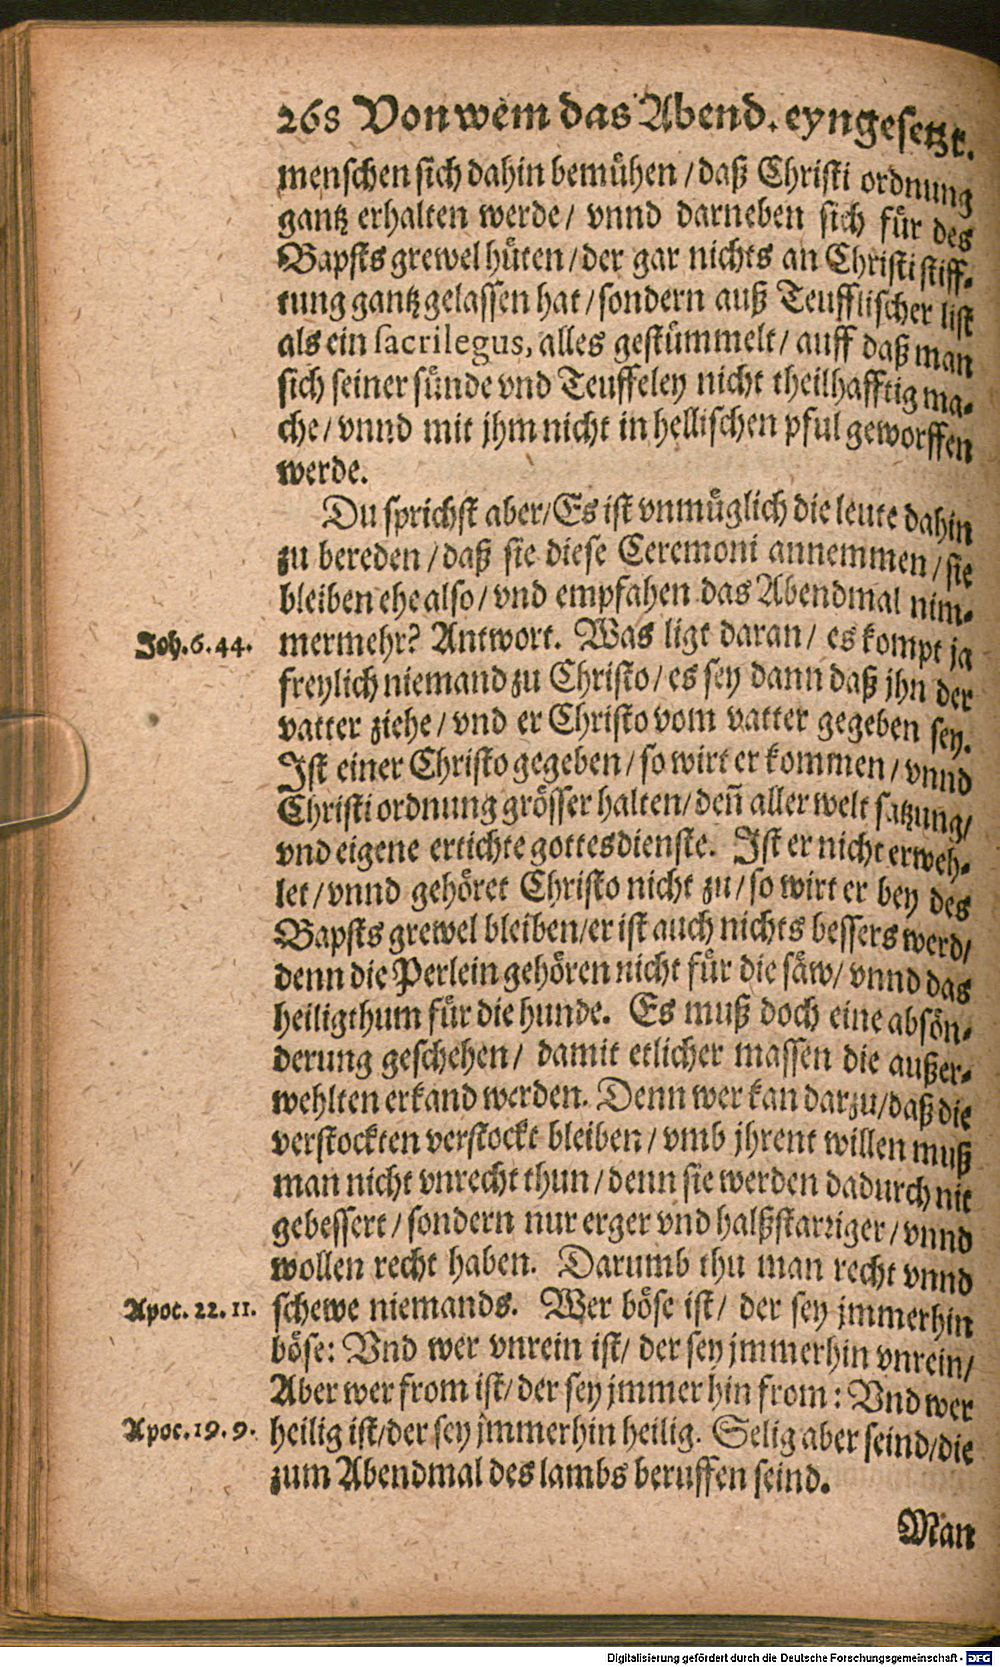 268 Von wem das Abend. eyngesetzt.
menschen sich dahin bemühen / daß Christi ordnung
gantz erhalten werde / vnnd darneben sich für des
Bapsts grewel hüten / der gar nichts an Christi stiff-
tung gantz gelassen hat / sondern auß Teufflischer list
als ein sacrilegus, alles gestümmelt / auff daß man
sich seiner sünde vnd Teuffeley nicht theilhafftig ma-
che / vnnd mit jhm nicht in hellischen pful geworffen
werde.
Du sprichst aber / Es ist vnmüglich die leute dahin
zu bereden / daß sie diese Ceremoni annemmen / sie
bleiben ehe also / vnd empfahen das Abendmal nim-
Joh. 6. 44. mermehr? Antwort. Was ligt daran / es kompt ja
freylich niemand zu Christo / es sey dann daß jhn der
vatter ziehe / vnd er Christo vom vatter gegeben sey.
Ist einer Christo gegeben / so wirt er kommen / vnnd
Christi ordnung grösser halten / deñ aller welt satzung /
vnd eigene ertichte gottesdienste. Ist er nicht erweh-
let / vnnd gehöret Christo nicht zu / so wirt er bey des
Bapsts grewel bleiben / er ist auch nichts bessers werd /
denn die Perlein gehören nicht für die säw / vnnd das
heiligthum für die hunde. Es muß doch eine absön-
derung geschehen / damit etlicher massen die außer-
wehlten erkand werden. Denn wer kan darzu / daß die
verstockten verstockt bleiben / vmb jhrent willen muß
man nicht vnrecht thun / denn sie werden dadurch nit
gebessert / sondern nur erger vnd halßstarriger / vnnd
wollen recht haben. Darumb thu man recht vnnd
Apoc. 22. 11. schewe niemands. Wer böse ist / der sey jmmerhin
böse: Vnd wer vnrein ist / der sey jmmerhin vnrein /
Aber wer from ist / der sey jmmer hin from: Vnd wer
Apoc. 19. 9. heilig ist / der sey jmmerhin heilig. Selig aber seind / die
zum Abendmal des lambs beruffen seind.
Man
Digitalisierung gefördert durch die Deutsche Forschungsgemeinschaft - DFG